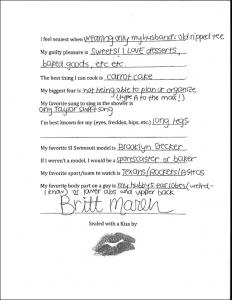 I feel sexiest when wearing only my husband's old ripped tee
My guilty pleasure is Sweets! I LOVE desserts,
baked goods, etc etc.
The best thing I can cook is carrot cake
My biggest fear is not being able to plan or organize
(type A to the max!)
My favorite song to sing in the shower is
any Taylor Swift song
I'm best known for my (eyes, freckles, hips, etc.) long legs
My favorite SI Swimsuit model is Brooklyn Decker
If I weren't a model, I would be a sportscaster or baker
My favorite sport/team to watch is Texans/Rockets/Astros
My favorite body part on a guy is my hubby's earlobes (weird-
I know) or lower abs and upper back
Britt Maren
Sealed with a Kiss by